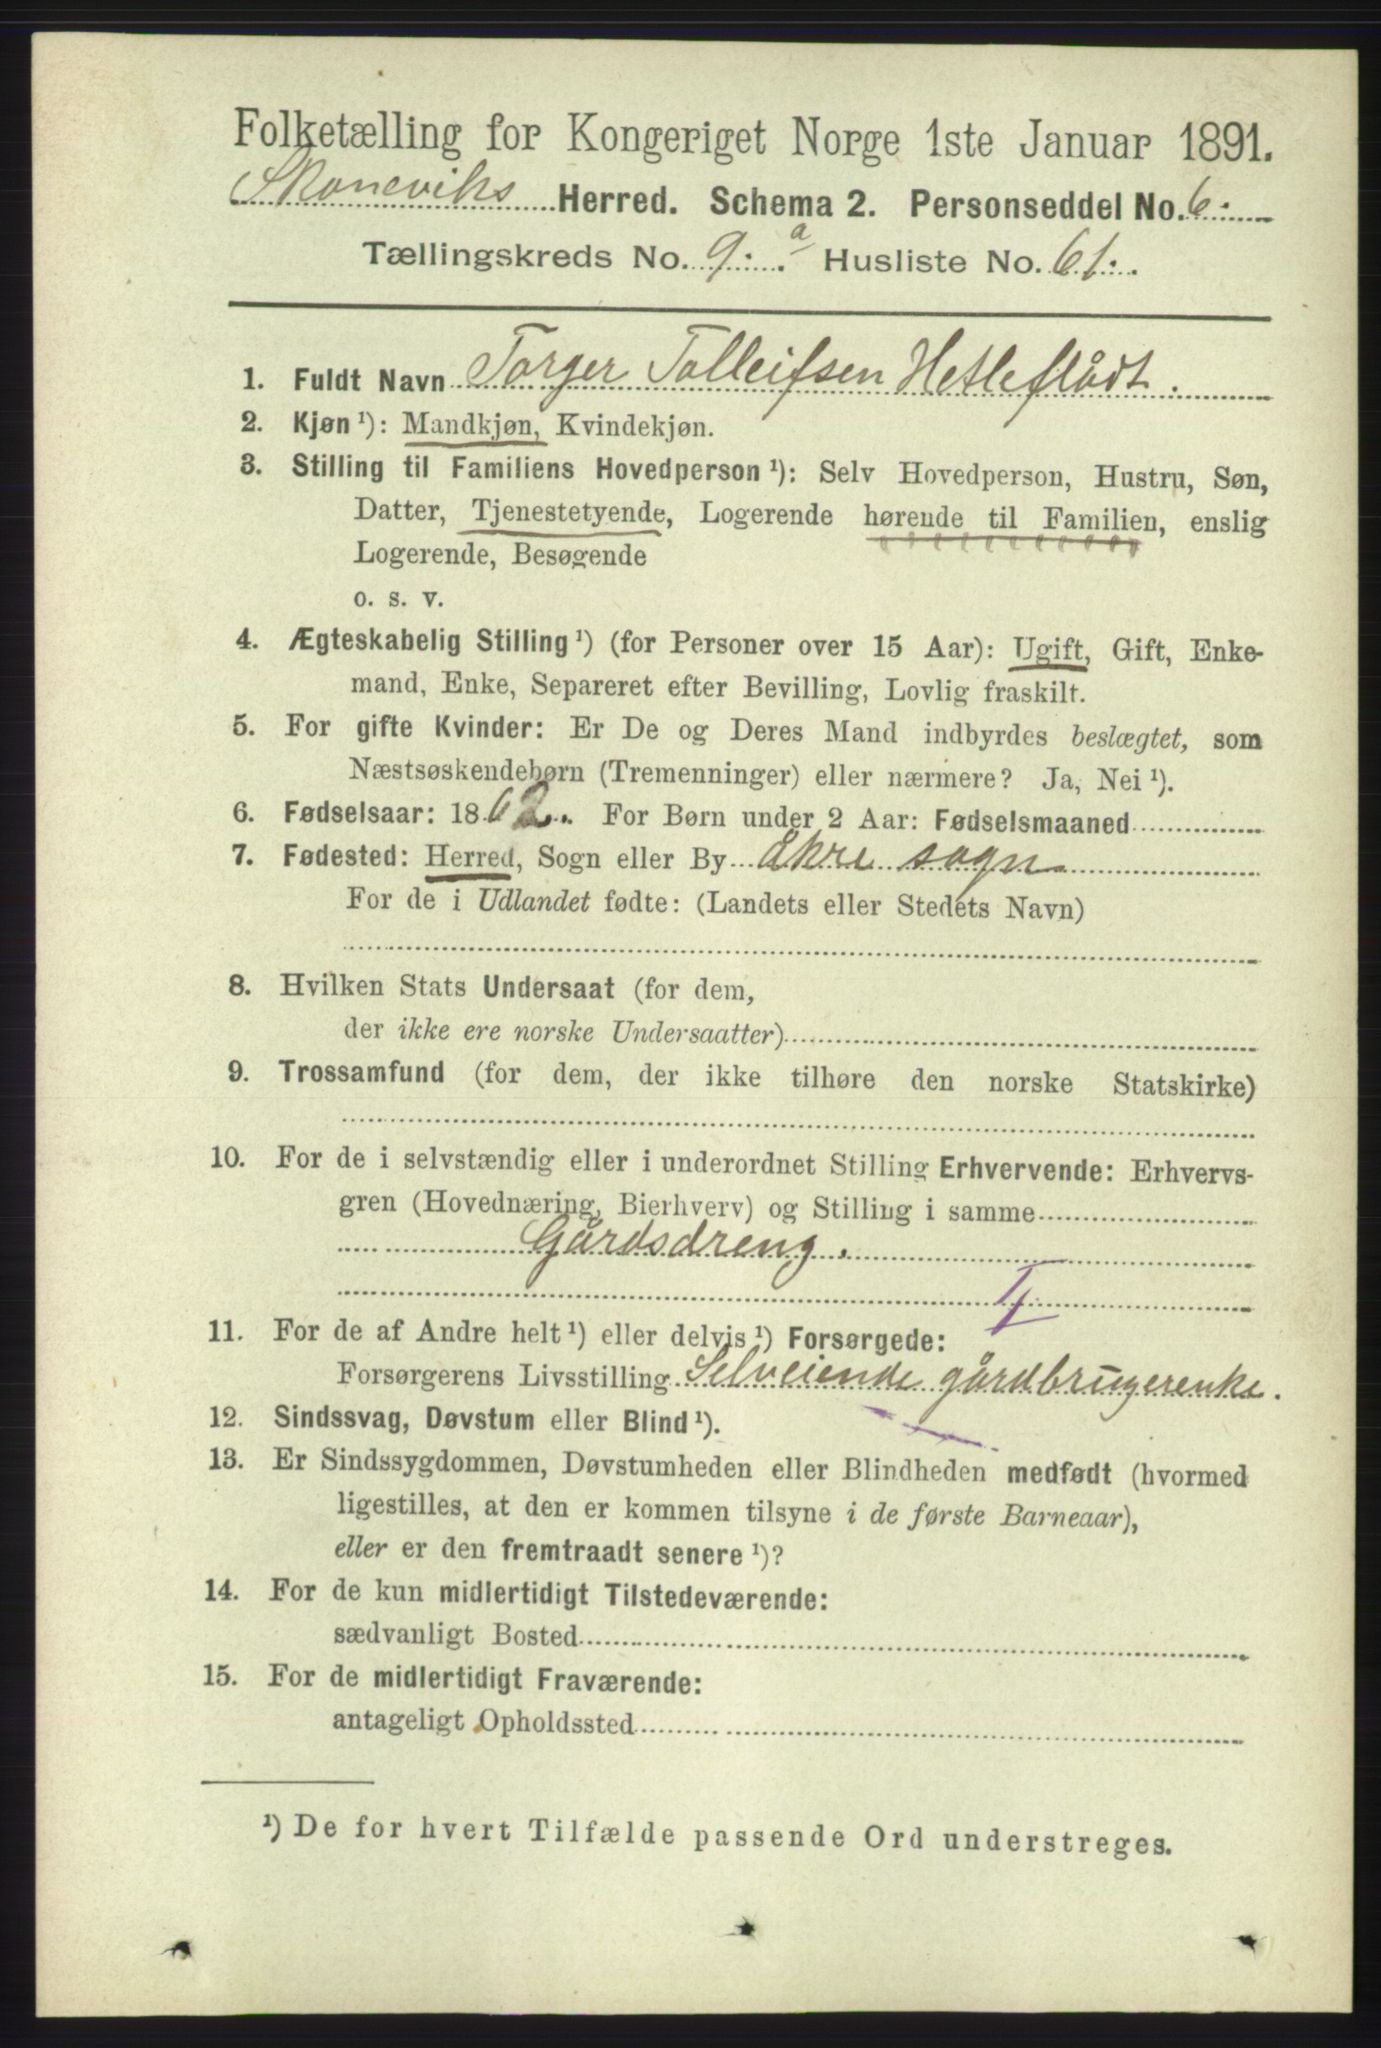 Folketælling for Kongeriget Norge 1ste Januar 1891.
Skoneviks Herred. Schema 2. Personseddel No. 6.
Tællingskreds No. 9. a Husliste No. 61.
1. Fuldt Navn Torger Tolleifsen Hetleflådt.
2. Kjøn ¹): Mandkjøn, Kvindekjøn.
3. Stilling til Familiens Hovedperson ¹): Selv Hovedperson, Hustru, Søn,
Datter, Tjenestetyende, Logerende hørende til Familien, enslig
Logerende, Besøgende
o. s. v.
4. Ægteskabelig Stilling ¹) (for Personer over 15 Aar): Ugift, Gift, Enke-
mand, Enke, Separeret efter Bevilling, Lovlig fraskilt.
5. For gifte Kvinder: Er De og Deres Mand indbyrdes beslægtet, som
Næstsøskendebørn (Tremenninger) eller nærmere? Ja, Nei ¹).
6. Fødselsaar: 1862. For Børn under 2 Aar: Fødselsmaaned
7. Fødested: Herred, Sogn eller By Ekre sogn
For de i Udlandet fødte: (Landets eller Stedets Navn)
8. Hvilken Stats Undersaat (for dem,
der ikke ere norske Undersaatter)
9. Trossamfund (for dem, der ikke tilhøre den norske Statskirke)
10. For de i selvstændig eller i underordnet Stilling Erhvervende: Erhvervs-
gren (Hovednæring, Bierhverv) og Stilling i samme
Gårdsdreng.
11. For de af Andre helt ¹) eller delvis ¹) Forsørgede:
Forsørgerens Livsstilling Selveiende gårdbrugerenke.
12. Sindssvag, Døvstum eller Blind ¹).
13. Er Sindssygdommen, Døvstumheden eller Blindheden medfødt (hvormed
ligestilles, at den er kommen tilsyne i de første Barneaar),
eller er den fremtraadt senere ¹)?
14. For de kun midlertidigt Tilstedeværende:
sædvanligt Bosted
15. For de midlertidigt Fraværende:
antageligt Opholdssted
¹) De for hvert Tilfælde passende Ord understreges.